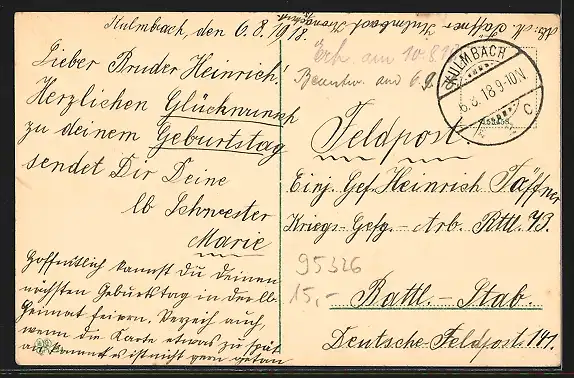 Kulmbach, den 6.8.1918.
Lieber Bruder Heinrich!
Herzlichen Glückwunsch
zu deinem Geburtstag
sendet Dir Deine
lb Schwester
Marie
Hoffentlich kannst du deinen
nächsten Geburtstag in der lb.
Heimat feiern. Verzeih auch,
wenn die Karte etwas zu spät
ankommt es ist nicht gern getan
Abs: M. Täffner Kulmbach
Erh. am 10.8.18
Beantw. am 6.9.
KULMBACH
6.8.18.9-10.N
C
Feldpost.
Einj. Gef. Heinrich Täffner
Kriegs-Gefg.-Arb. Bttl. 43.
95326
15,-
Battl.-Stab.
Deutsche-Feldpost. 141.